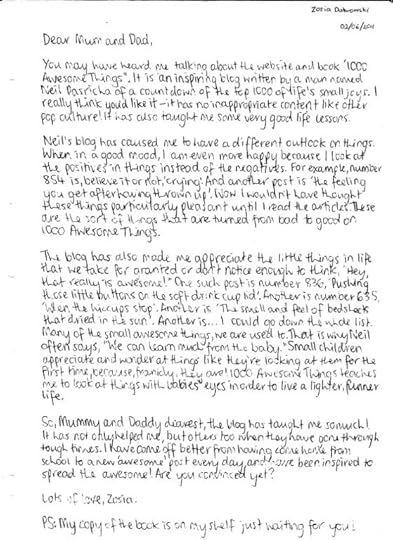 Zosia Dabrowski
02/06/2011
Dear Mum and Dad,
You may have heard me talking about the website and book '1000
Awesome Things". It is an inspiring blog written by a man named
Neil Pasricha of a countdown of the top 1000 of life's small joys. I
really think you'd like it - it has no inappropriate content like other
pop culture! It has also taught me some very good life lessons.
Neil's blog has caused me to have a different outlook on things.
When in a good mood, I am even more happy because I look at
the positives in things instead of the negatives. For example, number
854 is, believe it or not, 'crying'. And another post is 'the feeling
you get after having thrown up'. Now I wouldn't have thought
these things particularly pleasant until I read the articles. These
are the sort of things that are turned from bad to good on
1000 Awesome Things.
The blog has also made me appreciate the little things in life
that we take for granted or don't notice enough to think, "Hey,
that really is awesome!" One such post is number 836, 'Pushing
those little buttons on the soft drink cup lid'. Another is number 635,
'When the hiccups stop'. Another is 'The smell and feel of bedsheets
that dried in the sun'. Another is... I could go down the whole list.
Many of the small awesome things, we are used to. That is why Neil
often says, "We can learn much from the baby." Small children
appreciate and wonder at things like they're looking at them for the
first time, because, frankly, they are! 1000 Awesome Things teaches
me to look at things with babies' eyes in order to live a lighter, funner
life.
So, Mummy and Daddy dearest, the blog has taught me so much!
It has not only helped me, but others too when they have gone through
tough times. I have come off better from having come home from
school to a new 'awesome' post every day, and have been inspired to
spread the awesome! Are you convinced yet?
Lots of love, Zosia.
PS: My copy of the book is on my shelf just waiting for you!